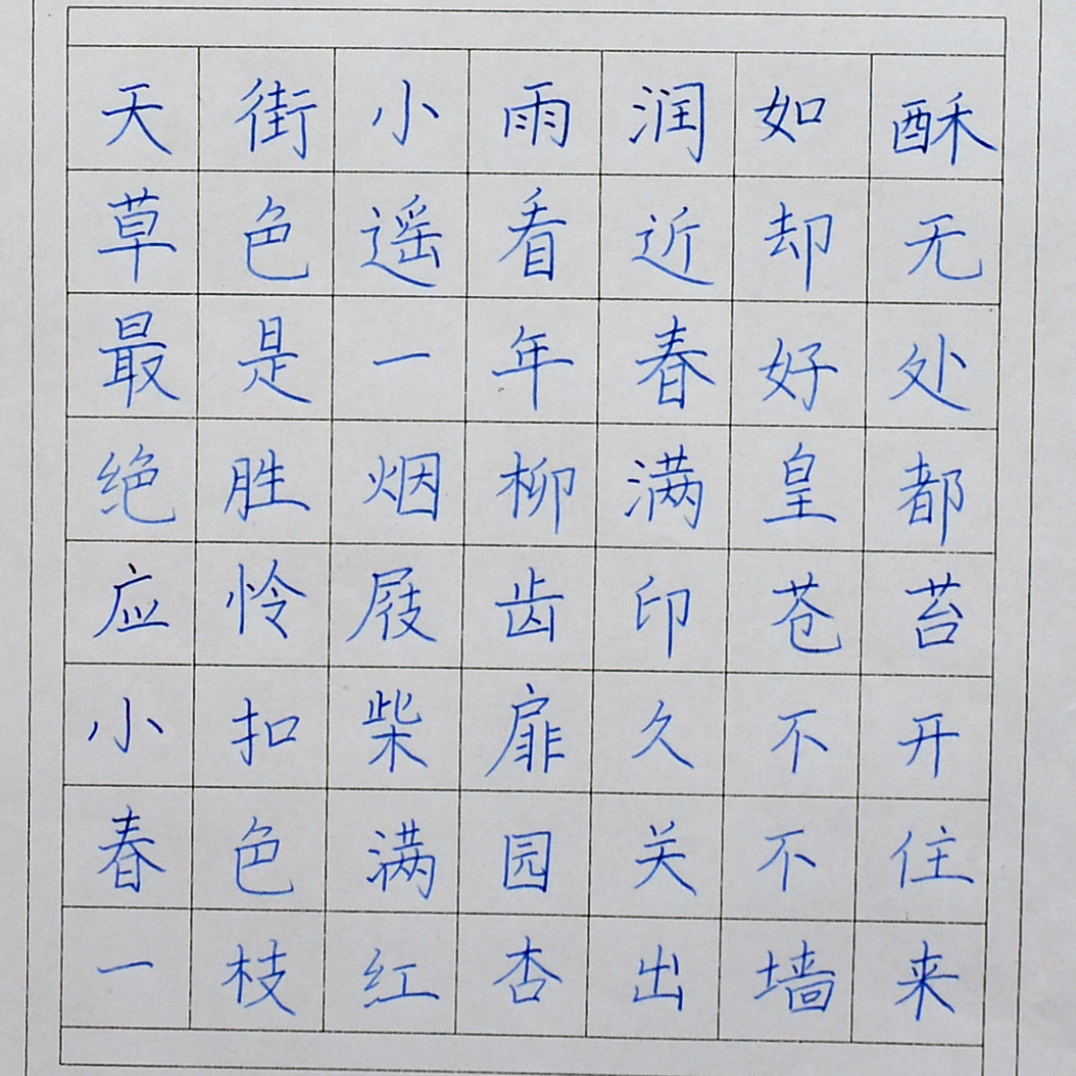 天街小雨润如酥
草色遥看近却无
最是一年春好处
绝胜烟柳满皇都
应怜屐齿印苍苔
小扣柴扉久不开
春色满园关不住
一枝红杏出墙来